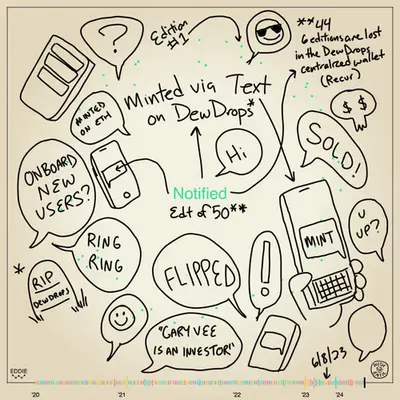 ?
Edition
#1
**44
6 editions are lost
in the DewDrops
centralized wallet
(Recur)
Minted via Text
on DewDrops*
#INTED
ON ETH
$ $
SOLD!
Hi
ONBOARD
NEW
USERS?
Notified
Edt of 50**
U
UP?
MINT
RING
RING
FLIPPED
!
*
RIP
DEWDROPS
"GARY VEE
IS AN INVESTOR"
6/8/23
EDDIE
'20
'21
'22
'23
'24